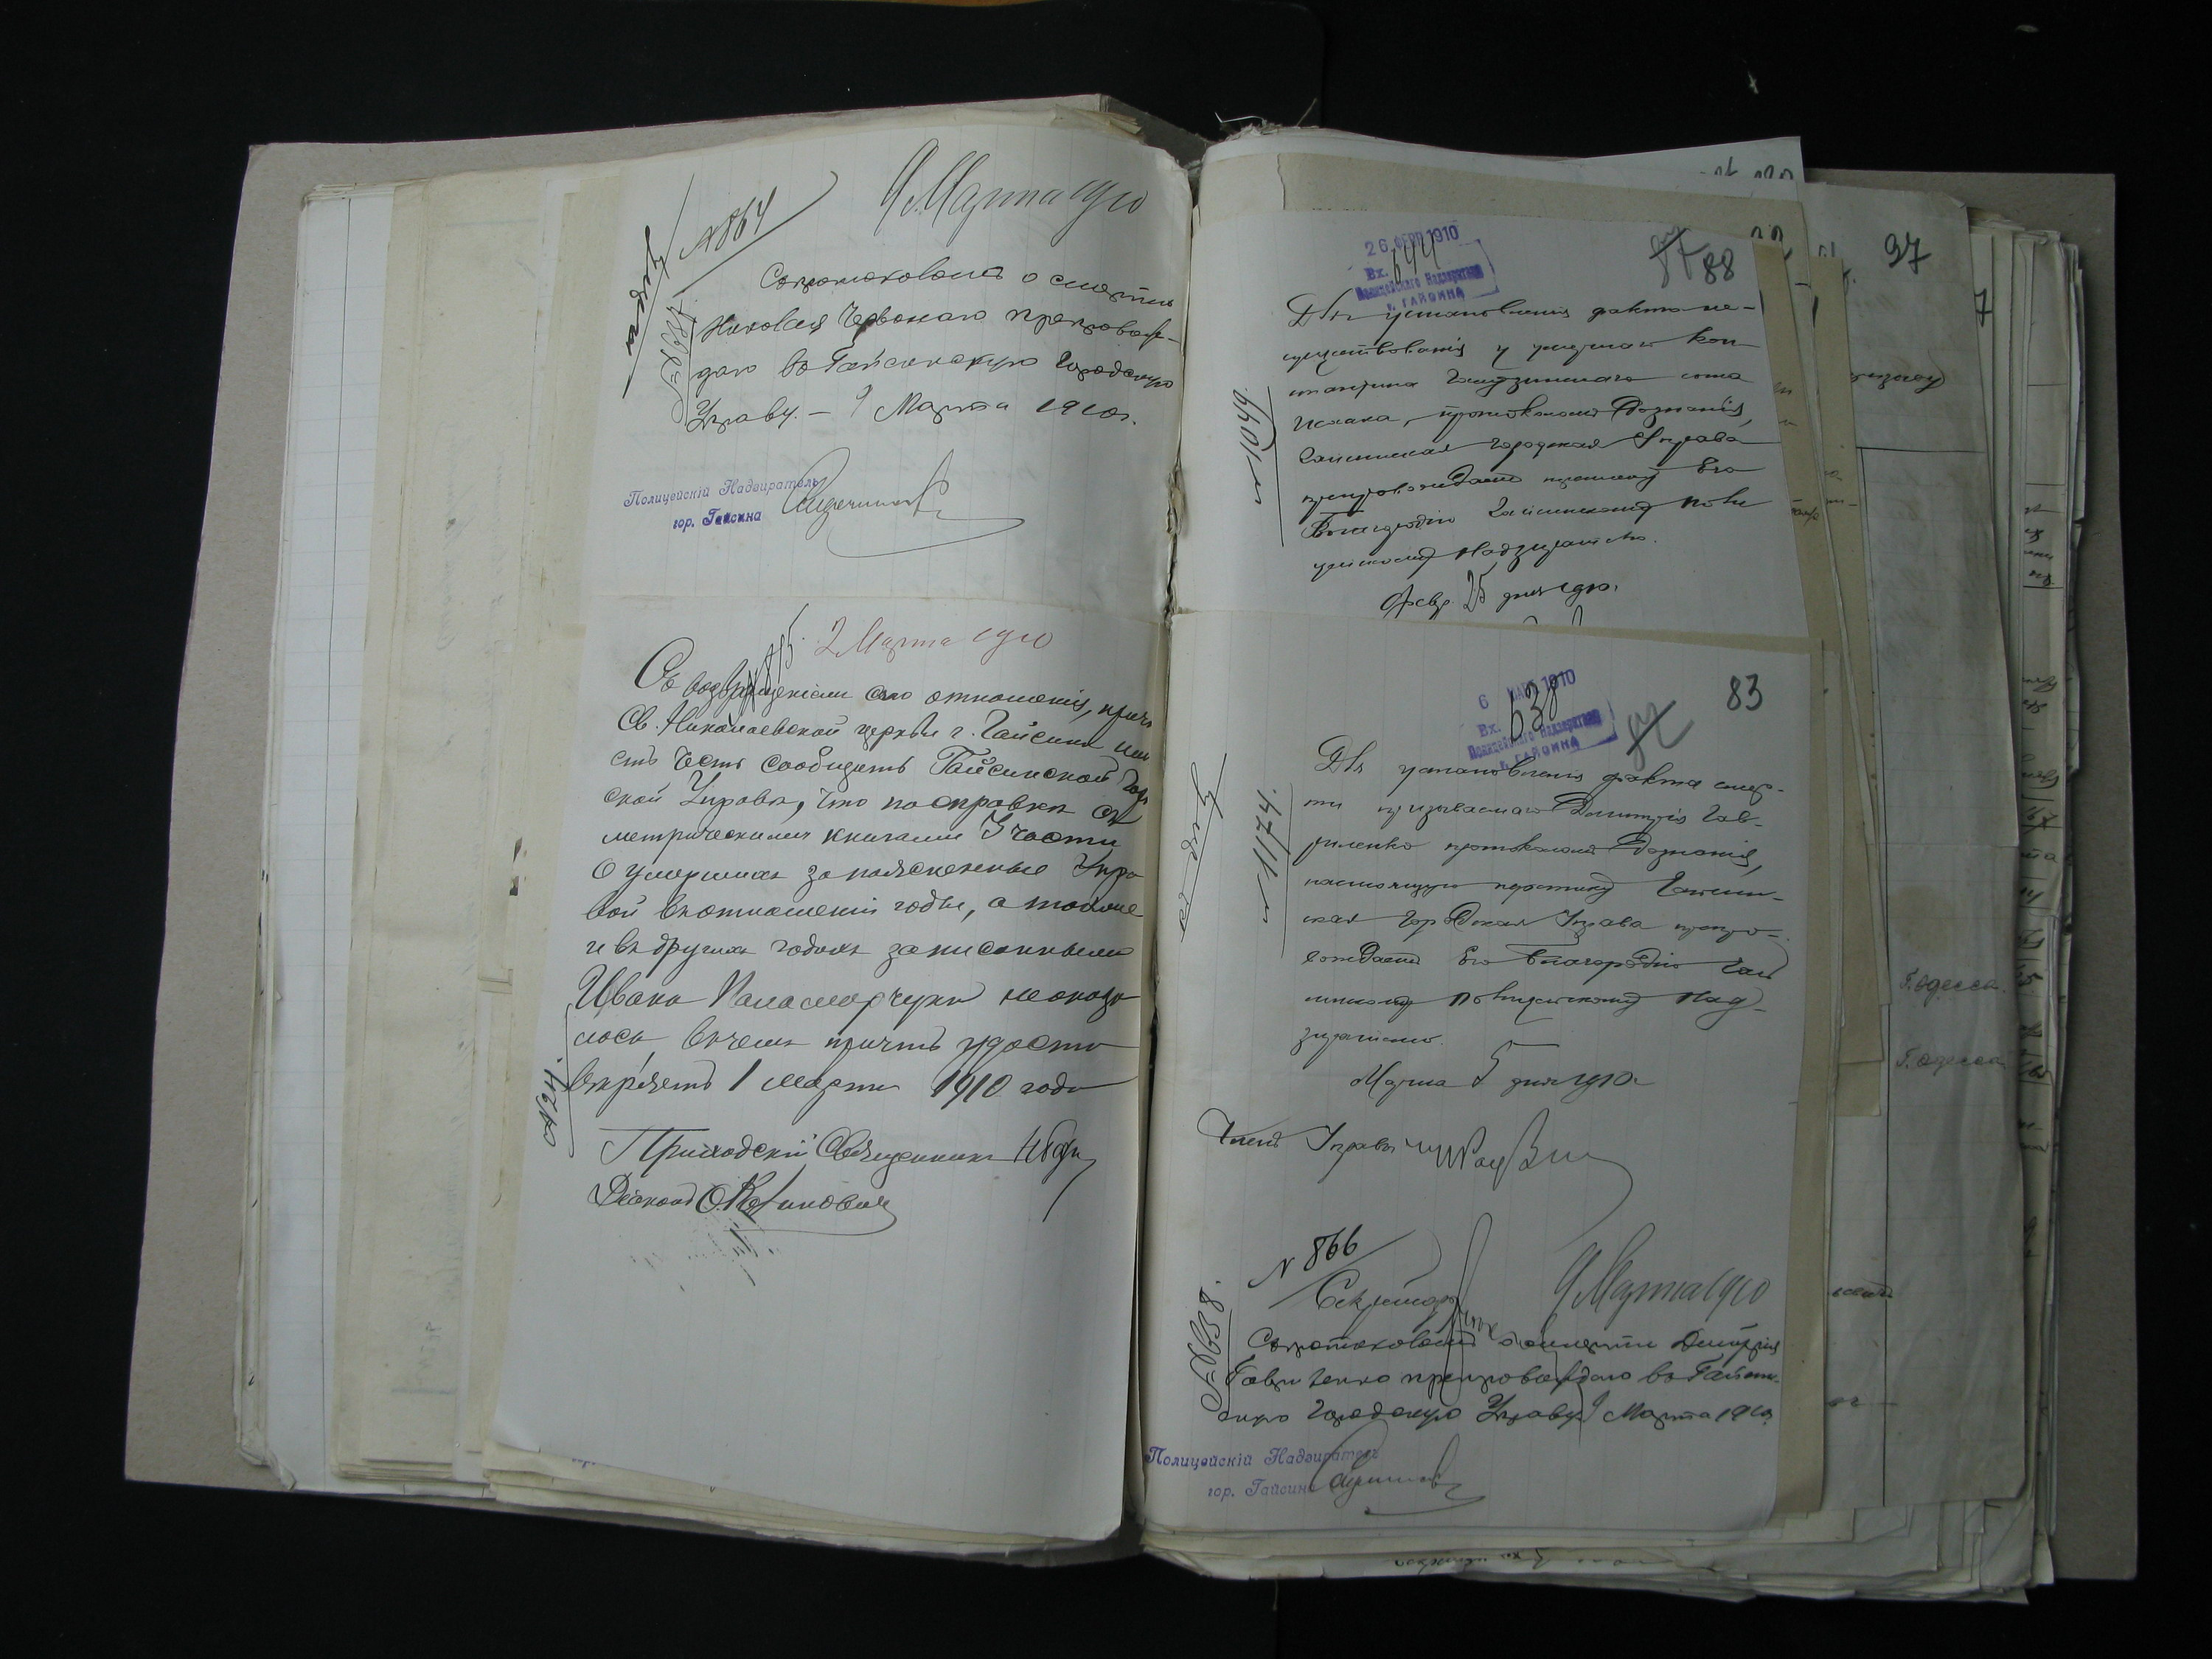 № 864
9 Марта 1910
Съ протоколомъ о смерти
Николая Червонаго препровож-
даю въ Гайсинскую Городскую
Управу. — 9 Марта 1910 г.
Полицейскій Надзиратель
гор. Гайсина
2 Марта 1910
Съ возвращеніемъ сего отношенія, причтъ
Св. Николаевской церкви г. Гайсина имѣ
етъ честь сообщить Гайсинской Город
ской Управѣ, что по справкѣ съ
метрическими книгами 3 части
о умершихъ за поясненные Упра
вой въ отношеніи годы, а также
и въ другихъ годахъ записаннымъ
Ивана Паламарчука не оказа
лось въ чемъ причтъ удосто
вѣряетъ 1 марта 1910 года
№ 24.
Приходскій Священникъ
Діаконъ
26 ФЕВР 1910
Вх. 644
Полицейскаго Надзирателя
г. ГАЙСИНА
87 88
Для установленія факта не-
существованія у умершаго Кон
стантина сына
Исаака, протоколомъ дознанія,
Гайсинская городская Управа
препровождаетъ переписку Его
Благородію Гайсинскому Поли
цейскому Надзирателю.
Февр. 25 дня 1910.
№ 1049
97
6 МАРТ 1910
Вх. 638
Полицейскаго Надзирателя
г. ГАЙСИНА
82
83
Для установленія факта смер-
ти призываемаго Димитрія Гав-
риленко протоколомъ дознанія,
настоящую переписку Гайсин-
ская Городская Управа препро-
вождаетъ Его Благородію Гай
синскому Полицейскому Над-
зирателю.
Марта 5 дня 1910 г.
№ 1174.
Членъ Управы
№ 866
Секретарь
9 Марта 1910
Съ протоколомъ о смерти Дмитрія
Гавриленко препровождаю въ Гайсин-
скую Городскую Управу 9 Марта 1910 г.
Полицейскій Надзиратель
гор. Гайсина
Г. Одесса.
Г. Одесса